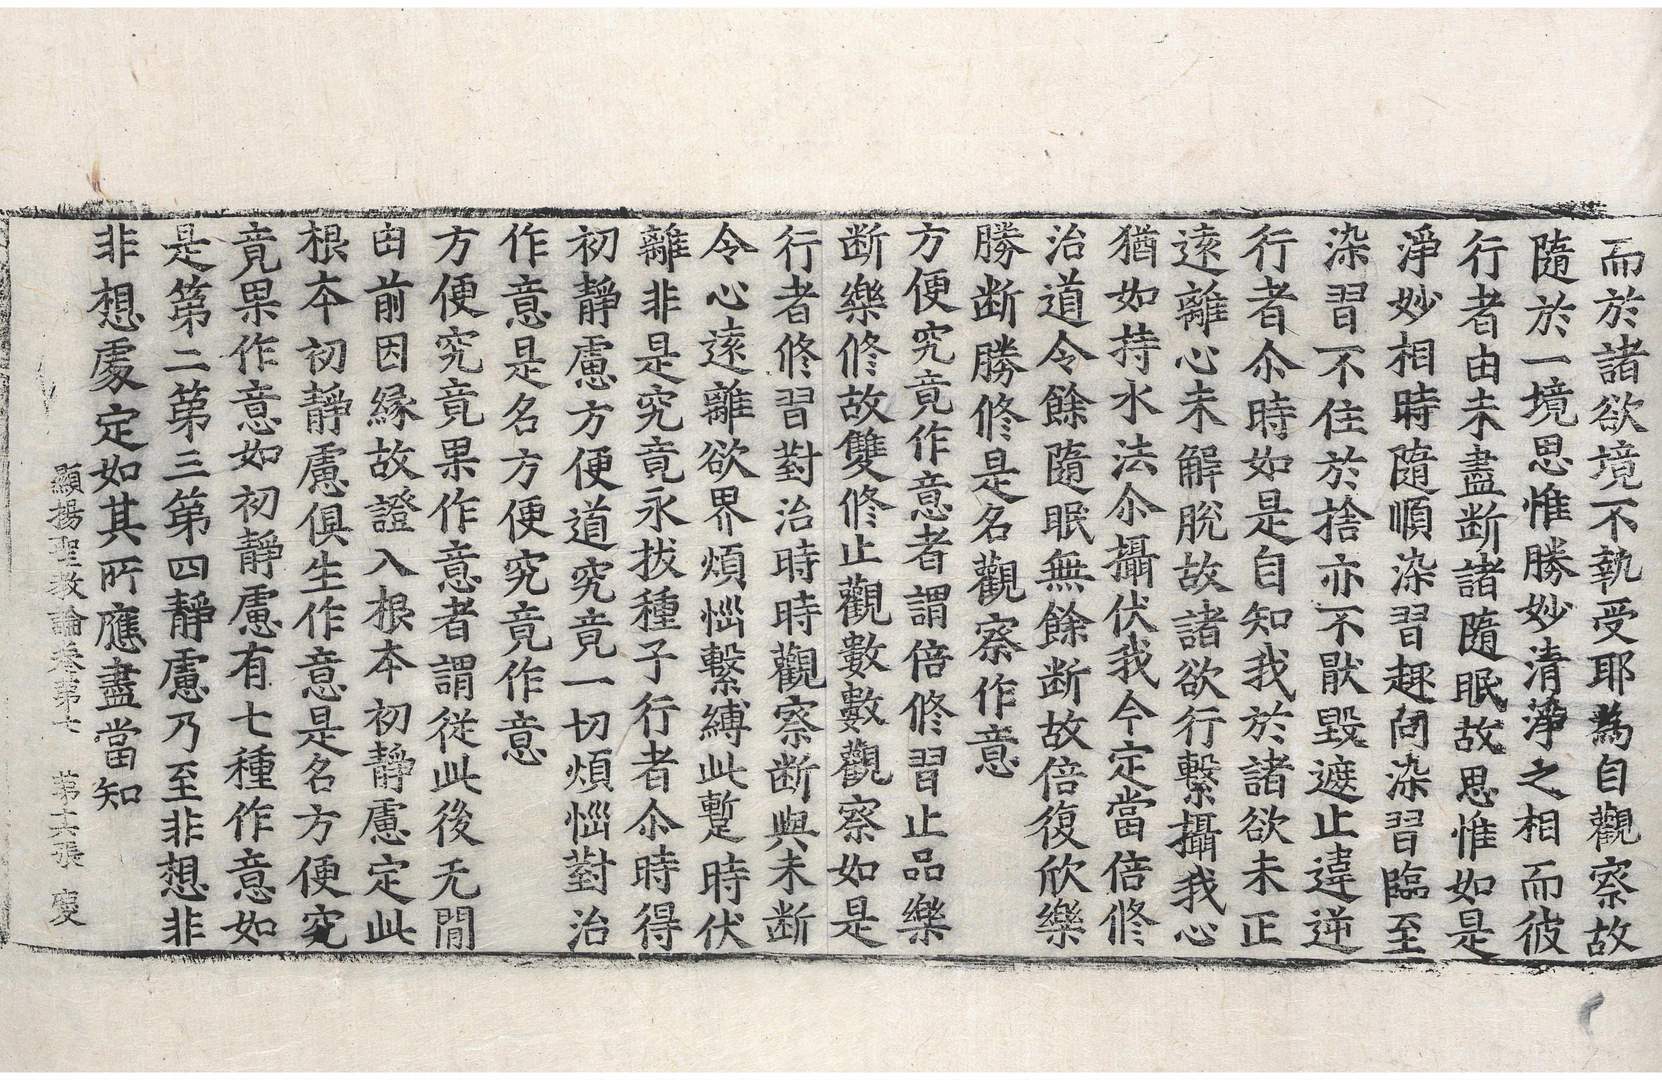 而於諸欲境不執受耶為自觀察故
隨於一境思惟勝妙清淨之相而彼
行者由未盡断諸隨眠故思惟如是
淨妙相時隨順染習趣向染習臨至
染習不住於捨亦不猒毀遮止違逆
行者尒時如是自知我於諸欲未正
遠離心未解脫故諸欲行繫攝我心
猶如持水法尒攝伏我今定當倍修
治道令餘隨眠無餘断故倍復欣樂
勝断勝修是名觀察作意
方便究竟作意者謂倍修習止品樂
断樂修故雙修止觀數數觀察如是
行者修習對治時時觀察断與未断
令心遠離欲界煩惱繫縛此蹔時伏
離非是究竟永拔種子行者尒時得
初靜慮方便道究竟一切煩惱對治
作意是名方便究竟作意
方便究竟果作意者謂從此後无閒
由前因緣故證入根本初靜慮定此
根本初靜慮俱生作意是名方便究
竟果作意如初靜慮有七種作意如
是第二第三第四靜慮乃至非想非
非想處定如其所應盡當知
顯揚聖教論卷第七　第十六張　慶